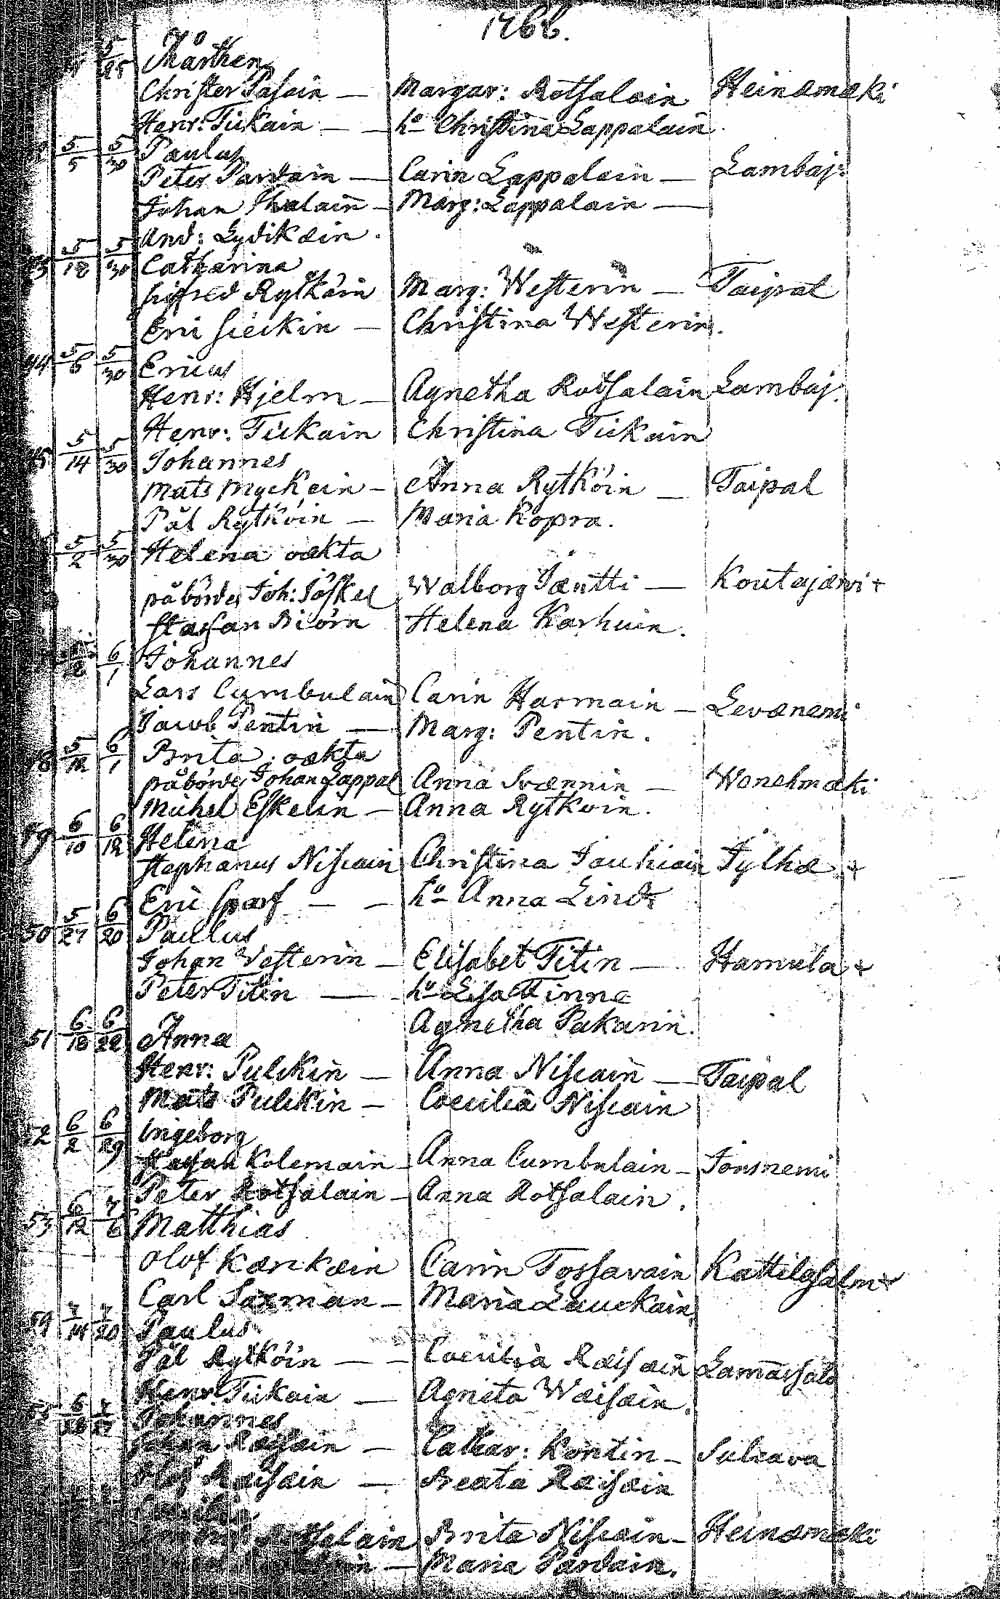 1766.
5/25 Mårthen
Christer Pasain — Margar: Rotsalain Heinämäki
Henr: Tiikain — — ho Christina Lappalain
5/5 5/30 Paulus
Peter Pardain — Carin Lappalain — Lambaj:
Johan Ihalain — Marg: Lappalain —
And: Lydikäin.
5/18 5/30 Catharina
Sigfred Rytköin Marg: Westerin — Taipal
Eric Sieikin — Christina Westerin.
44 5/6 5/30 Ericus
Henr: Hjelm — Agnetha Rotsalain Lambaj:
Henr: Tiikain Christina Tiikain
45 5/14 5/30 Johannes
Mats Myckein — Anna Rytköin — Taipal
Pål Rytköin — Maria Kopra.
5/2 5/30 Helena oækta
påbördes Joh: Jöskel Walborg Jæntti — Koutajærvi +
Staffan Biörn Helena Karhuin.
6/1 Johannes
Lars Cumbulain Carin Harmain — Levænemi
Jacob Pentin — Marg: Pentin.
48 5/12 6/1 Brita oækta
påbördes Johan Lappal Anna Svænnin — Wonehmæki
Michel Eskelin — Anna Rytköin.
49 6/10 6/12 Helena
Stephanus Niscain Christina Jauhiain Jylhæ +
Eric Sparf — — ho Anna Lindt
50 5/27 6/20 Paulus
Johan Vesterin — Elisabet Titin — Hamula +
Peter Titin — ho Lisa Minna
Agnetha Pakarin.
51 6/18 6/22 Anna
Henr: Pulckin — Anna Niscain — Taipal
Mats Pulckin — Coecilia Niscain
52 6/2 6/29 Ingeborg
Staffan Kolemain — Anna Cumbulain — Jonsnemi
Peter Rotsalain — Anna Rotsalain.
53 6/12 7/6 Matthias
Olof Kærckæin Carin Tossavain Kattilasalm +
Carl Saxman — Maria Lauckain.
54 7/14 7/20 Paulus
Pål Rytköin — — Coecilia Ræisæin Lamassalo
Henr Tiikain — Agneta Wæisæin.
55 6/28 7/27 Johannes
Johan Ræisæin — Cathar: Kontin — Saleava
Olof Ræisæin — Beata Ræisæin
Brita Niscain — Heinæmæki
— Maria Pardain.